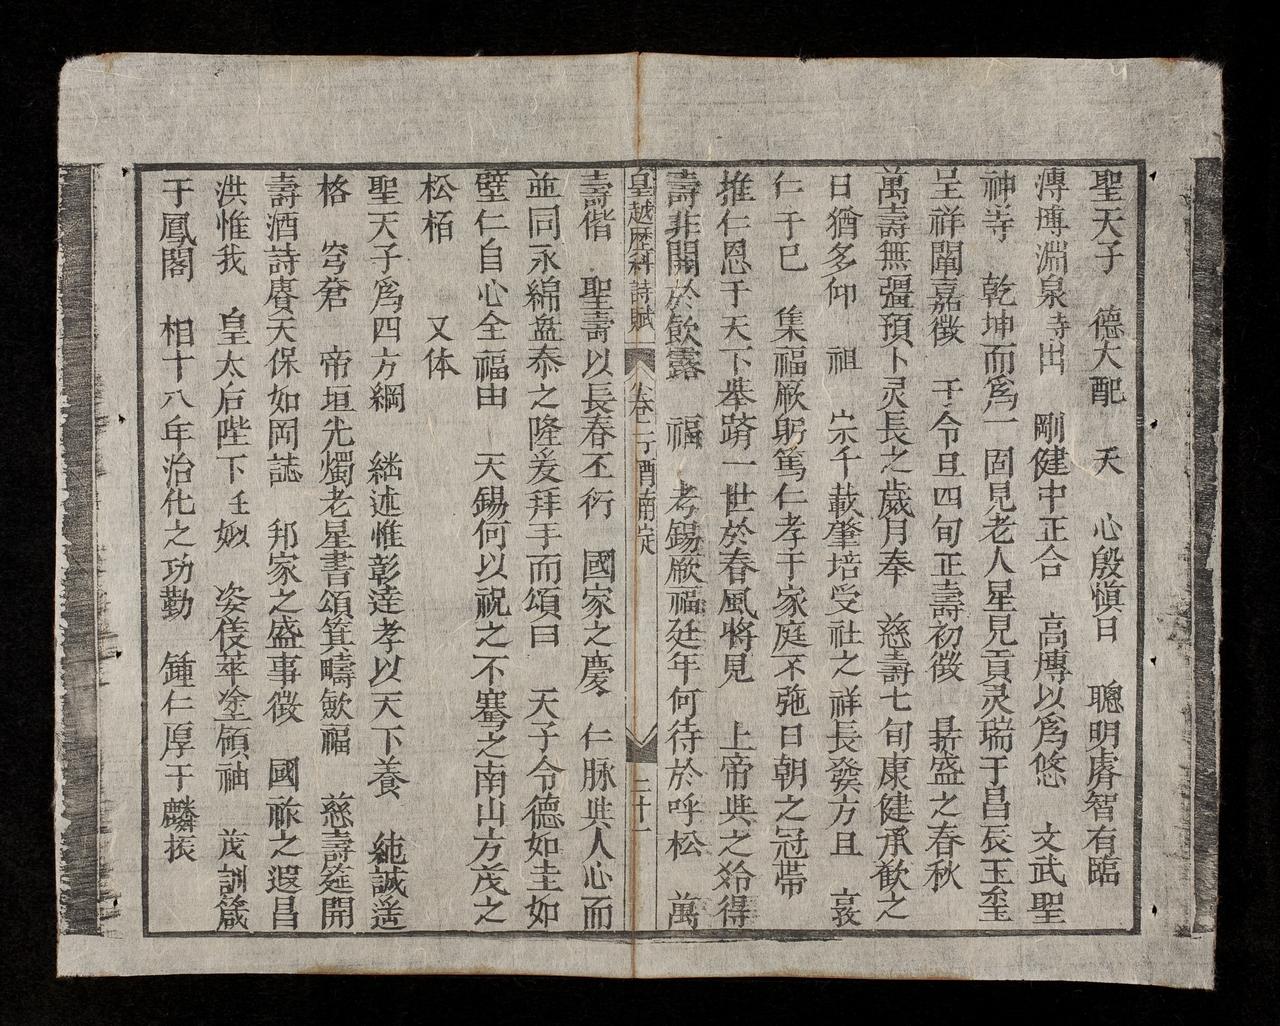 聖天子 德大配 天 心殷愼日 聰明睿智有臨
溥博淵泉時出 剛健中正合 高慱以爲悠 文武聖
神等 乾坤而爲一 固見老人星見貢灵瑞于昌辰玉至
呈祥闡嘉徵 于令旦四旬正壽初徵 昃盛之春秋
萬壽無疆預卜灵長之歲月奉 慈壽七旬康健承歡之
日猶多仰 祖 宗千載肇培受社之祥長發方且 裒
仁于已 集福厥躬篤仁孝于家庭不弛日朝之冠帶
推仁恩于天下举躋一世於春風將見 上帝與之令得
壽非關於飲露 福 考錫厥福延年何待於呼松 萬
皇越歷科詩賦 卷二 二十一
壽偕 聖壽以長春丕衍 國家之慶 仁脉與人心而
並同永綿盘泰之隆爰拜手而頌曰 天子令德如圭如
璧仁自心全福由 天錫何以祝之不騫之南山方茂之
松栢 又体
聖天子爲四方綱 繼述惟彰達孝以天下養 純誠遥
格 穹蒼 帝垣光燭老星書頌箕疇歛福 慈壽筵開
壽酒詩賡天保如岡誌 邦家之盛事徵 國祚之遐昌
洪惟我 皇太后陛下 姿 莘塗 茂訓箴
于鳳閣 相十八年治化之功勤 鍾仁厚于麟振